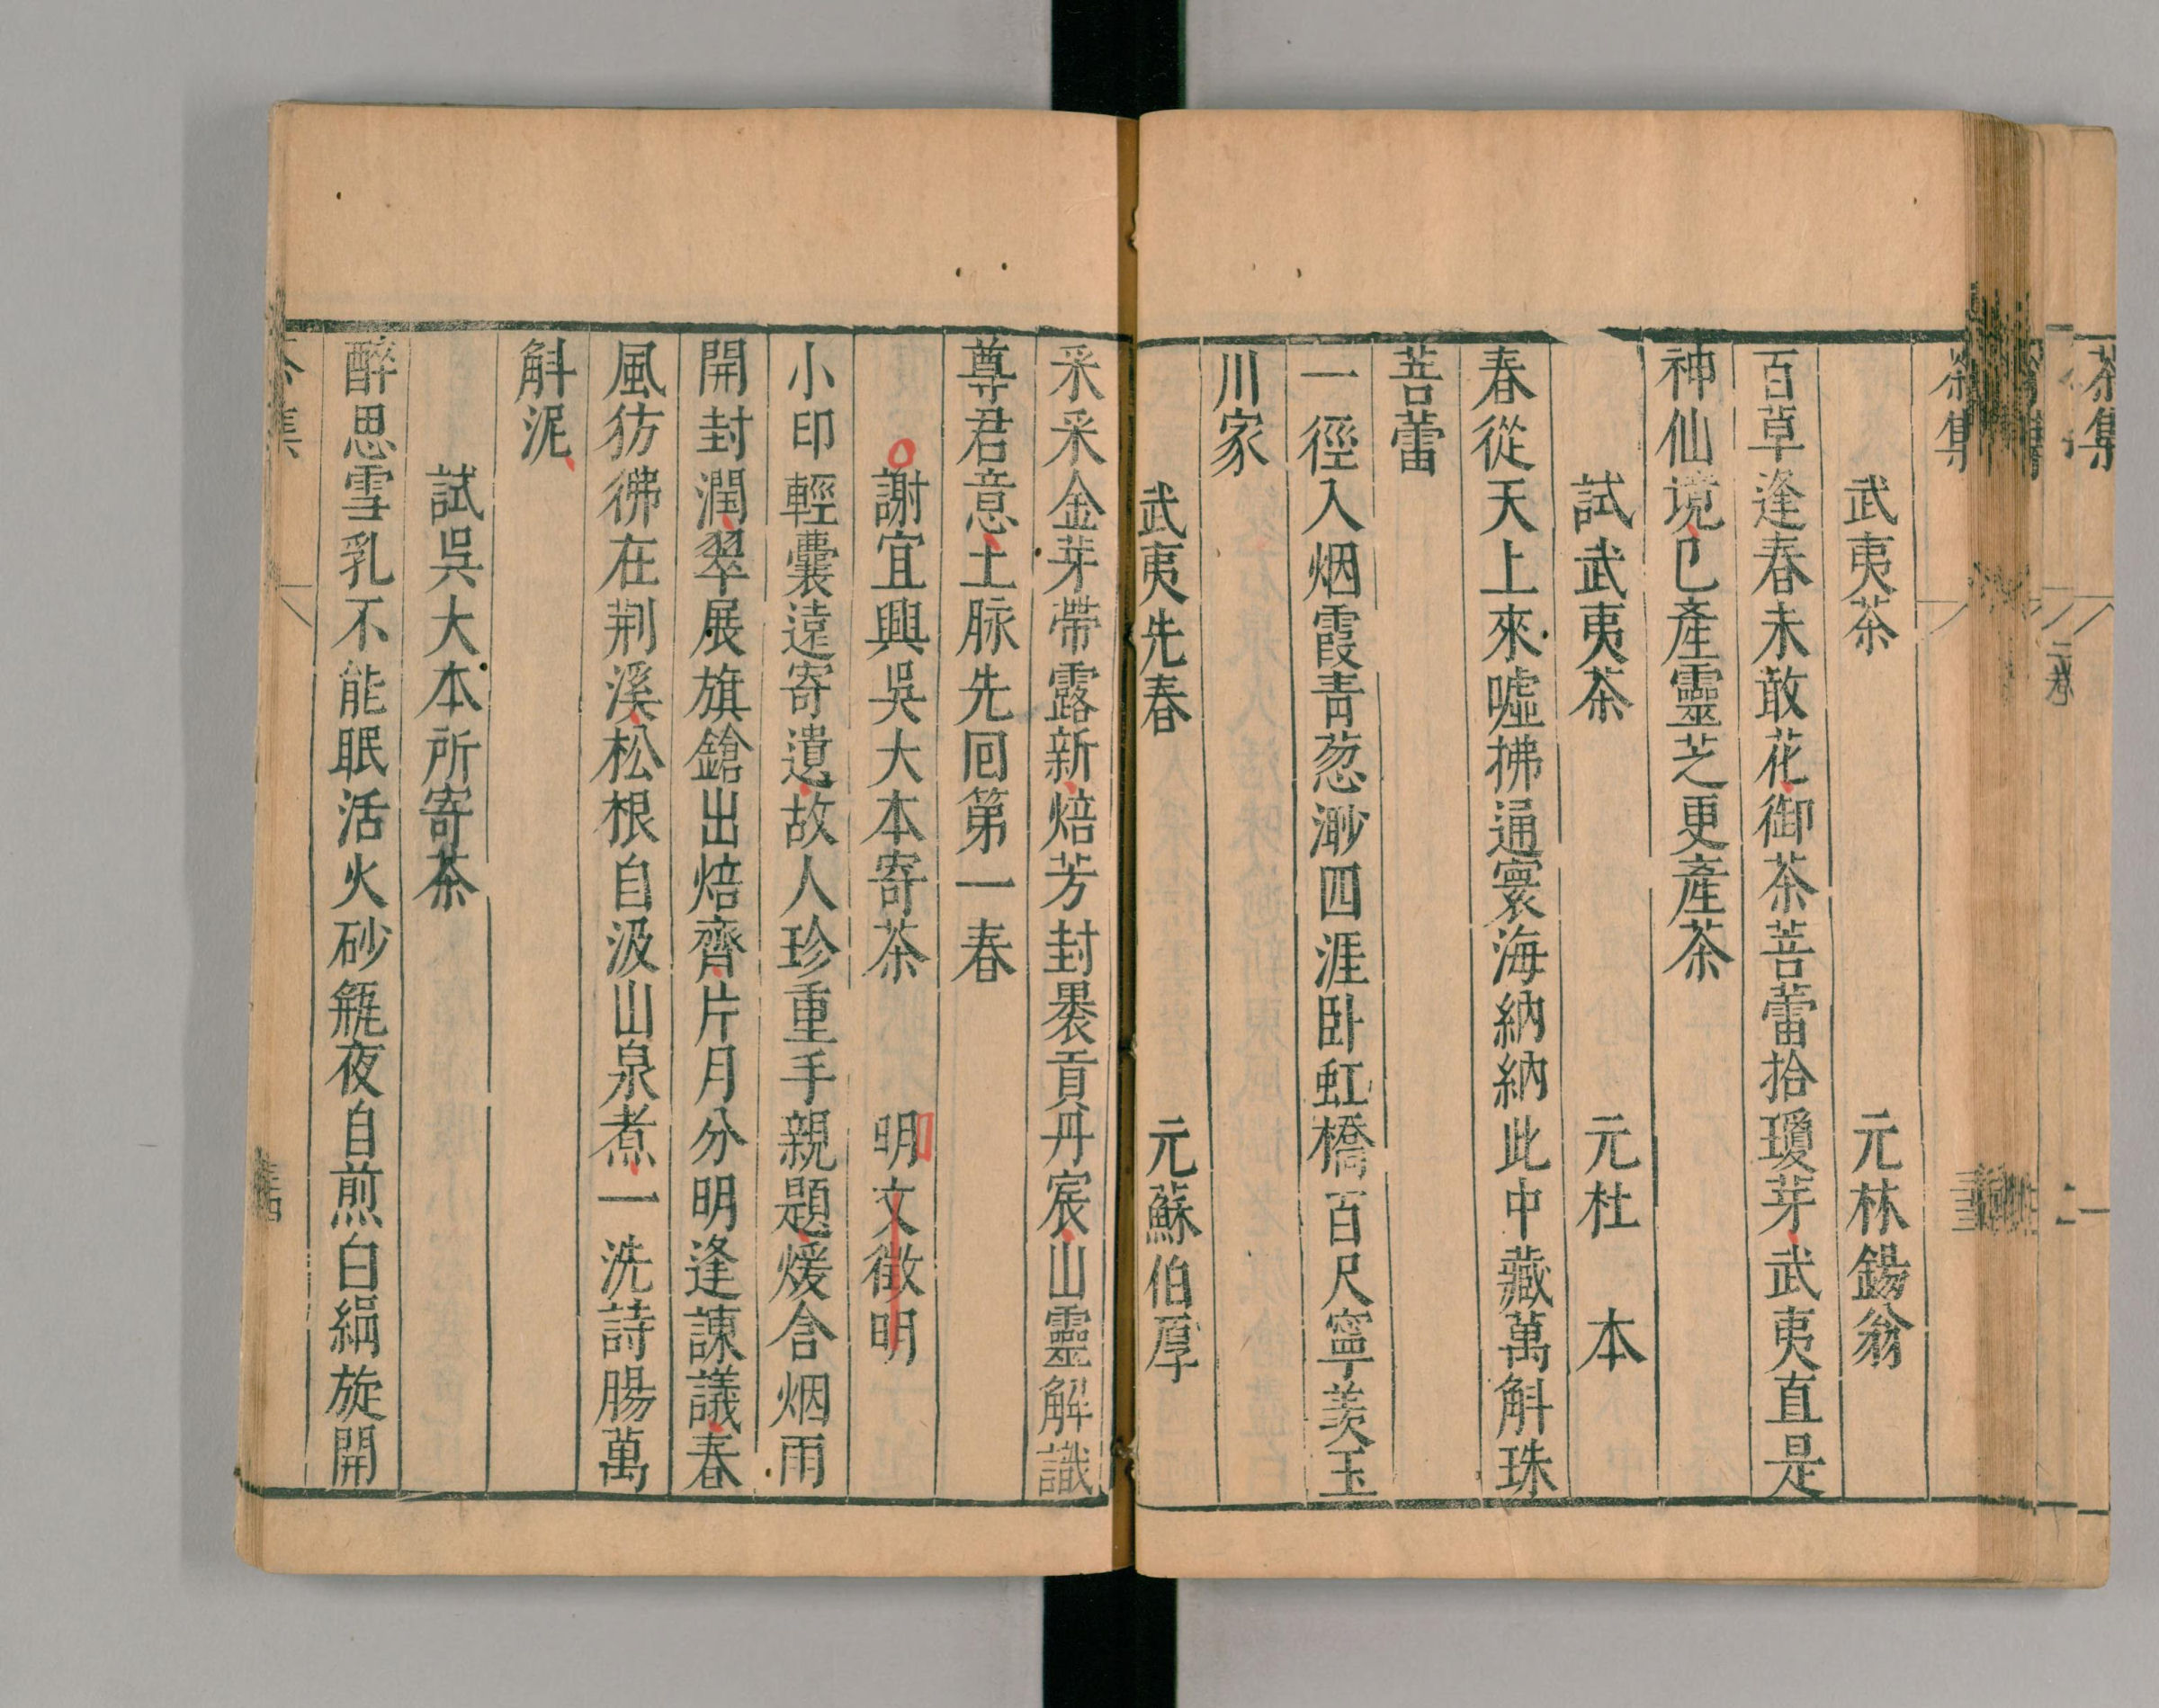 茶集
茶集
武夷茶 元林錫翁
百草逢春未敢花御茶菩蕾拾瓊芽武夷直是
神仙境已產靈芝更產茶
試武夷茶 元杜 本
春從天上來噓拂通寰海納納此中藏萬斛珠
菩蕾
一徑入烟霞青葱渺四涯卧虹橋百尺寧羡玉
川家
武夷先春 元蘇伯厚
采采金芽帶露新焙芳封褁貢丹宸山靈解識
尊君意土脉先回第一春
謝宜興吳大本寄茶 明文徵明
小印輕囊遠寄遺故人珍重手親題煖含烟雨
開封潤翠展旗鎗出焙齊片月分明逢諫議春
風彷彿在荆溪松根自汲山泉煮一洗詩腸萬
斛泥
試吳大本所寄茶
醉思雪乳不能眠活火砂缾夜自煎白絹旋開
集